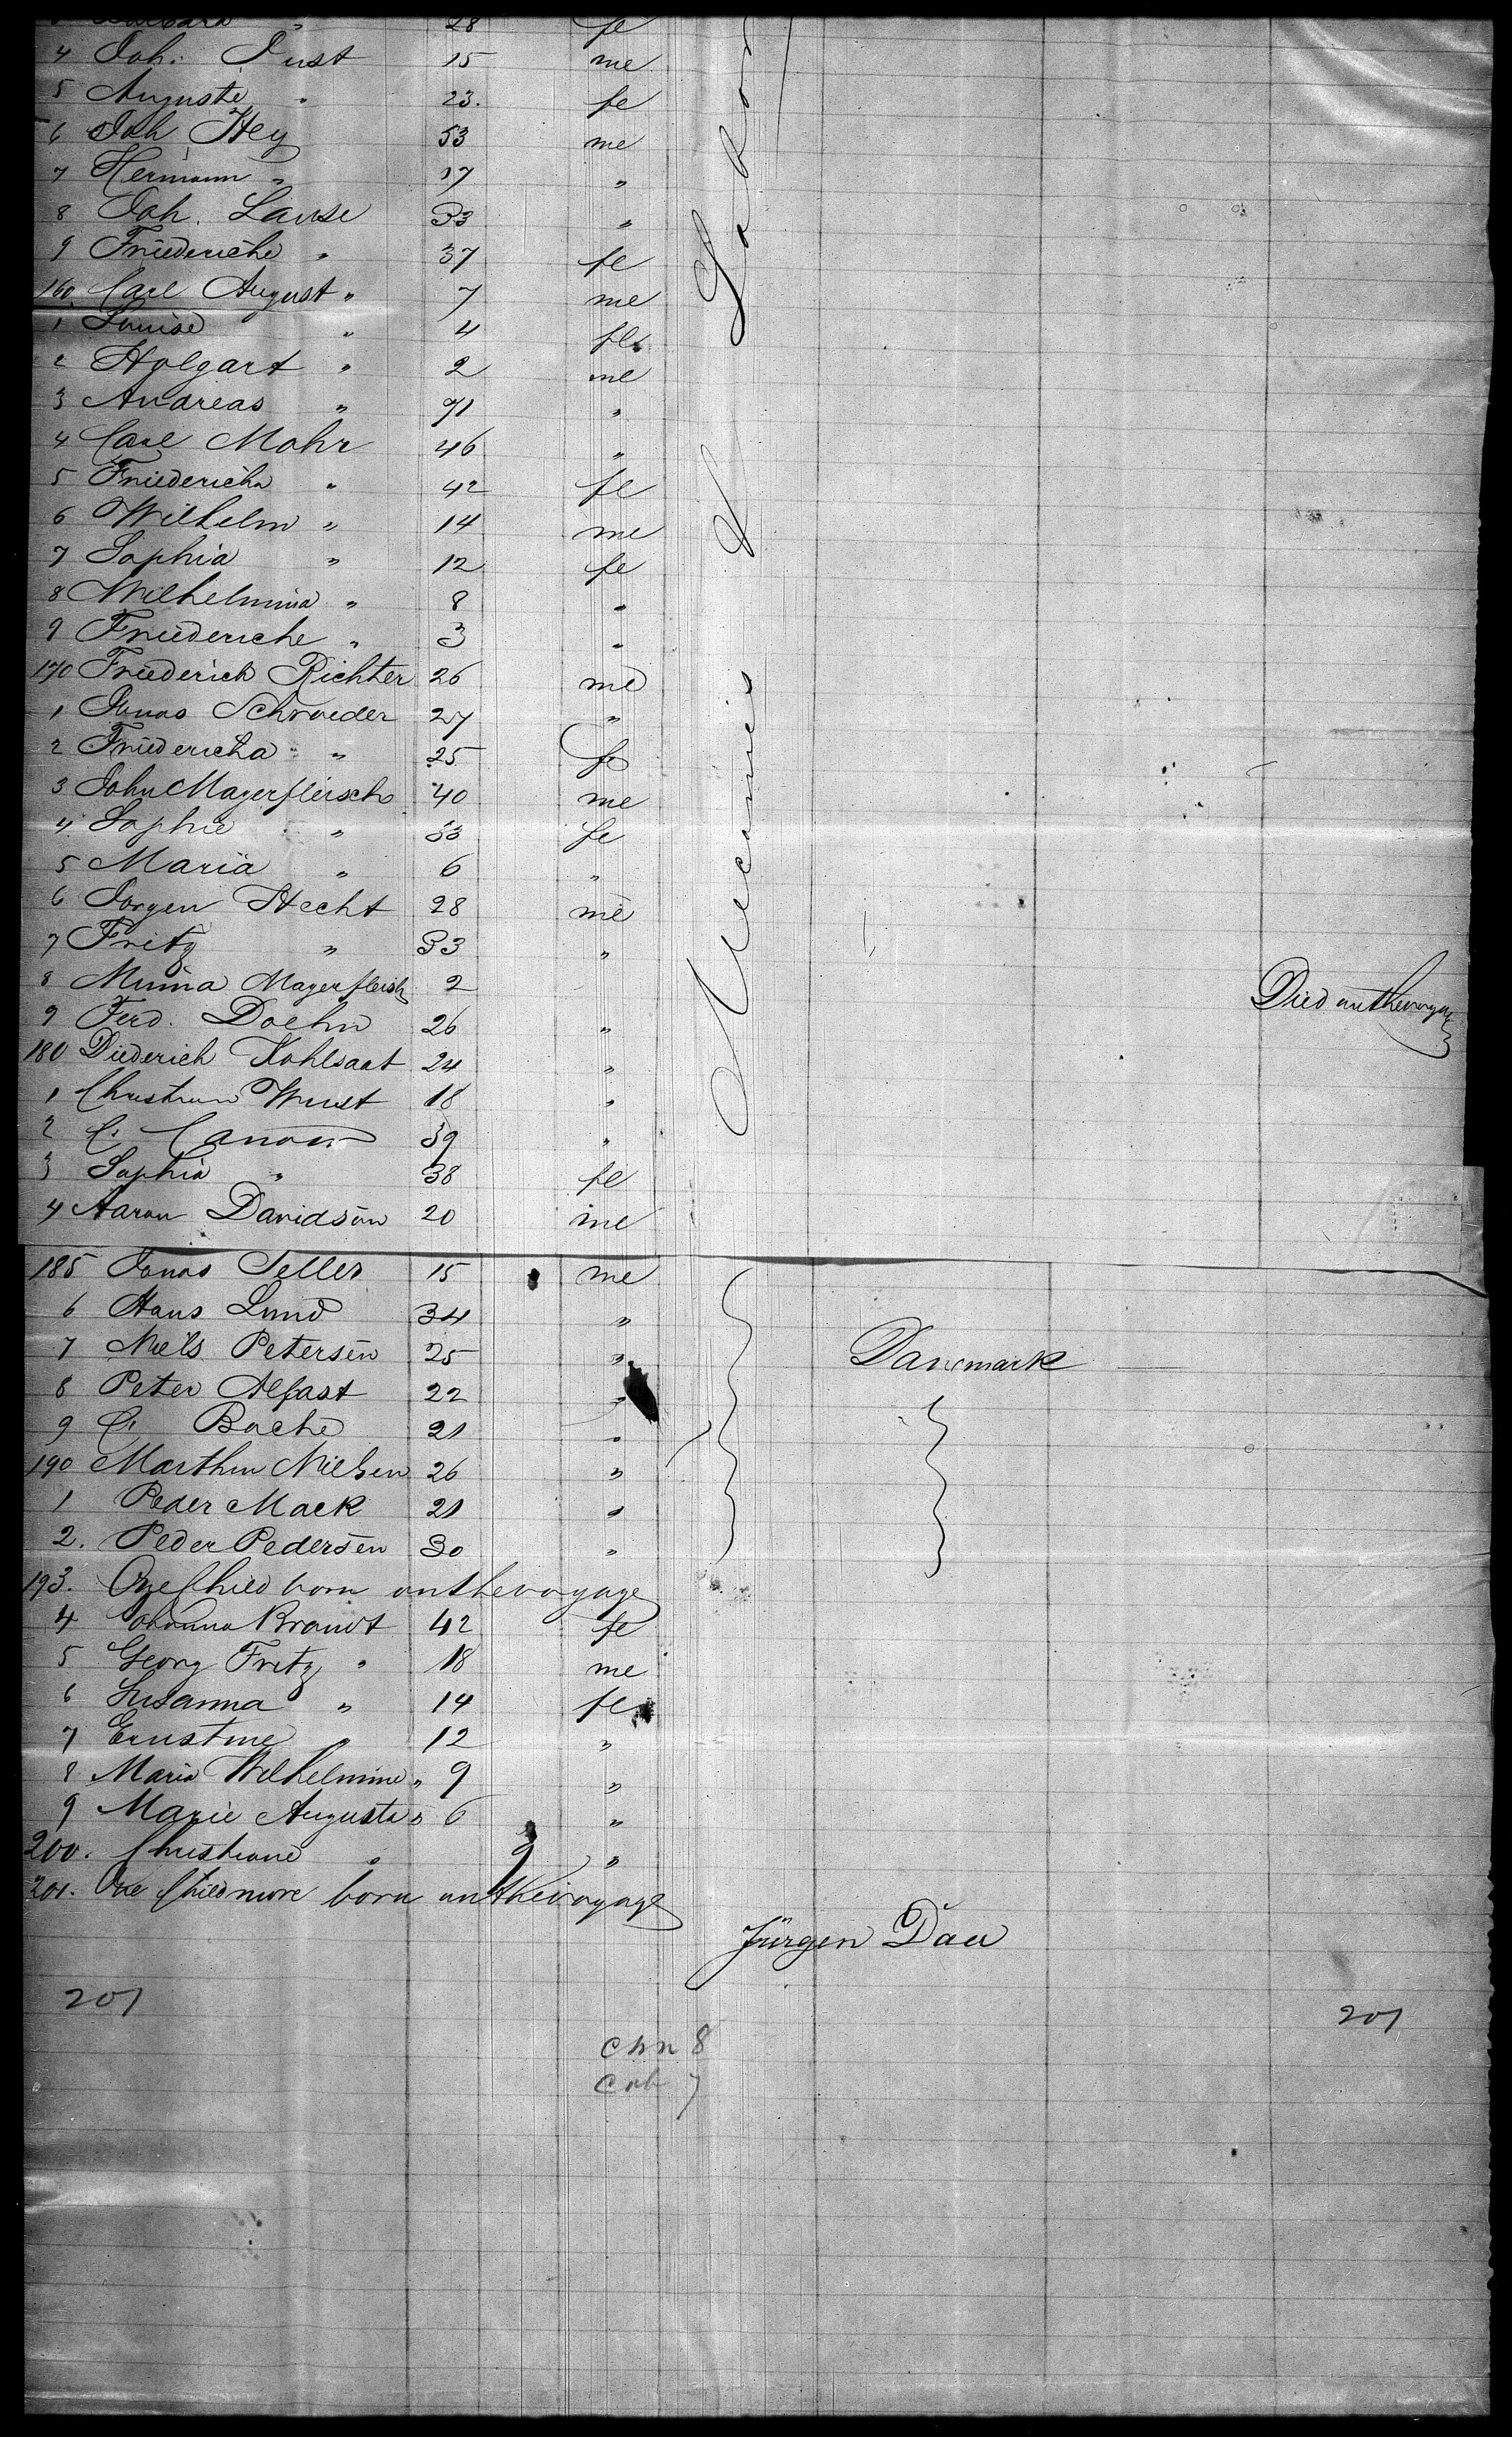 28 fe
4 Joh. Just 15 me
5 Auguste " 23. fe
6 Joh Hey 53 me
7 Hermann " 17 "
8 Joh. Lause 33 "
9 Friederiche " 37 fe
160 Carl August " 7 me
1 Louise " 4 fe
2 Holgart " 2 me
3 Andreas " 71 "
4 Carl Mohr 46 "
5 Friedericha " 42 fe
6 Wilhelm " 14 me
7 Sophia " 12 fe
8 Wilhelmina " 8 "
9 Friederiche " 3 "
170 Friederich Richter 26 me
1 Jonas Schroeder 27 "
2 Friedericha " 25 fe
3 John Magerfleisch 40 me
4 Sophie " 33 fe
5 Maria " 6 "
6 Jorgen Hecht 28 me
7 Fritz " 33 "
8 Minna Magerfleish 2 Died on the voyage
9 Ferd. Doehn 26 "
180 Diederich Kohlsaat 24 "
1 Christian Wust 18 "
2 C. 39 "
3 Sophia " 38 fe
4 Aaron Davidson 20 me
Mecanics &
185 Jonas Seller 15 me
6 Hans Lund 34 "
7 Niels Petersen 25 " Danemark
8 Peter Alfast 22 "
9 C. Boche 21 "
190 Marthin Nielsen 26 "
1 Peder Mack 21 "
2. Peder Pedersen 30 "
193. One Child born on the voyage
4 Johanna Brandt 42 fe
5 Georg Fritz " 18 me
6 Susanna " 14 fe
7 Ernstine " 12 "
8 Maria Wilhelmine " 9 "
9 Marie Augusta " 6 "
200. Christiane " 9 "
201. One Child more born on the voyage
Jürgen Dau
201 201
8
7